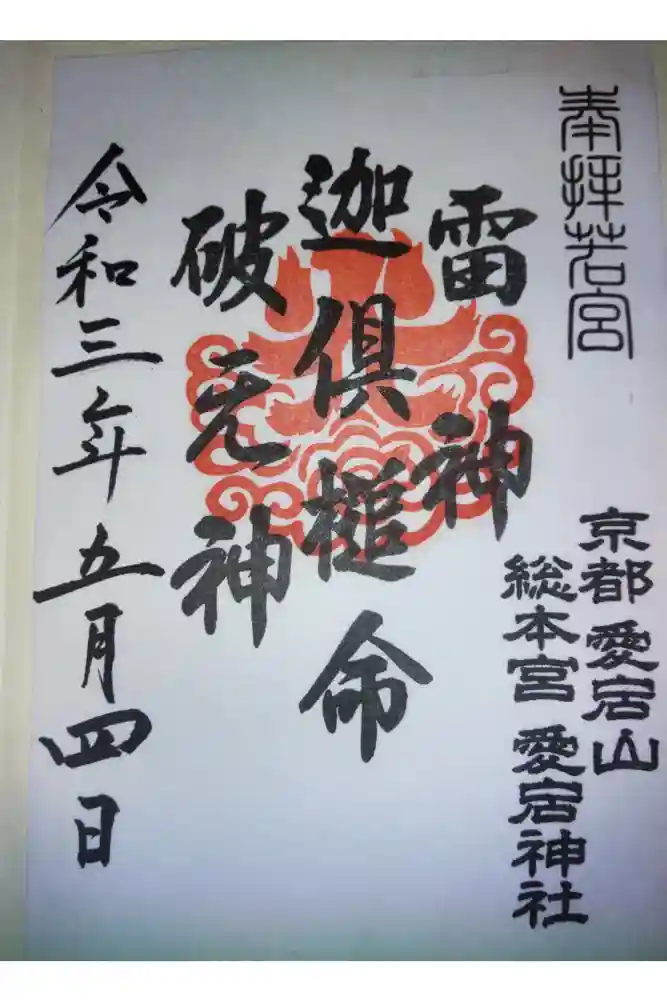 奉拝若宮
京都 愛宕山
総本宮 愛宕神社
雷神
迦倶槌命
破无神
令和三年五月四日